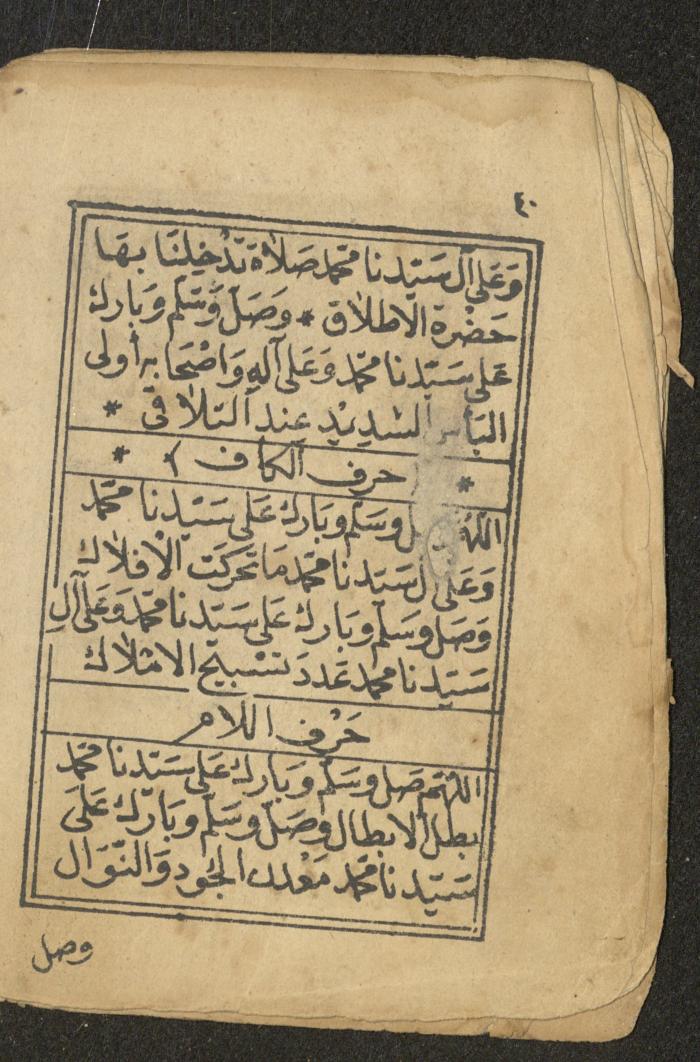 ٤٠
وَعَلَى آلِ سَيِّدِنَا مُحَمَّد صَلاَةً تُدْخِلُنَا بِهَا
حَضْرَةِ الاطلاق * وَصَلّ وَسَلّم وَبَارِك
عَلى سَيِّدنَا مُحَمّد وَعَلى آلِهِ وَاصْحَابِهِ أُولى
البَأسِ الشَدِيْدِ عِند التَلاَقى *
* حرف الكاف * *
اللهُمّ صل وسَلّم وبَارك عَلى سَيّدنا محمّد
وَعَلى آل سَيّدنا محمّد مَا تحَرَكَت الْافلاَك
وَصَل وسَلم وبَارك عَلى سَيّدنا محمّد وَعَلى آلِ
سَيّدنا محمّد عَدَدَ تسْبيح الامْلاَك
حَرْف اللام
اللهُمّ صَل وسَلّم وَبَارك عَلى سَيّدنا محمّد
بَطل الابطال وصَلّ وسَلّم وبَارك عَلى
سَيّدنا محمّد مَعْدن الجُود وَالنّوَال
وصل